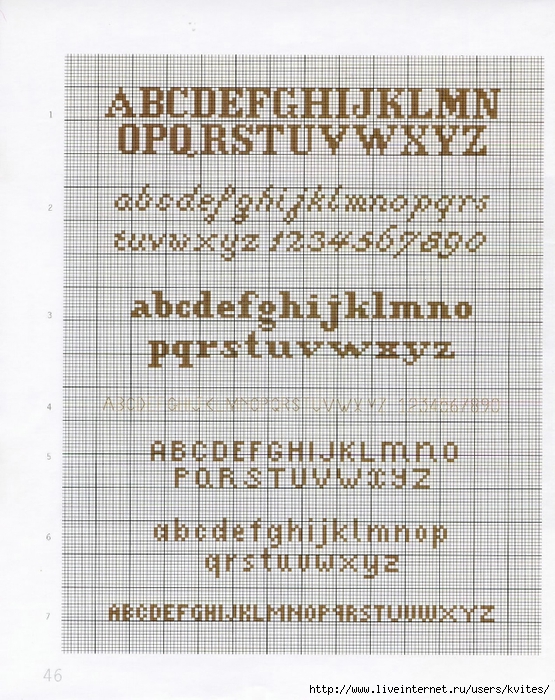 1
ABCDEFGHIJKLMN
OPQRSTUVWXYZ
2
abcdefghijklmnopqrs
tuvwxyz 1234567890
3
abcdefghijklmno
pqrstuvwxyz
4
5
ABCDEFGHIJKLMNO
PQRSTUVWXYZ
6
abcdefghijklmnop
qrstuvwxyz
7
ABCDEFGHIJKLMNOPQRSTUVWXYZ
46
http://www.liveinternet.ru/users/kvites/